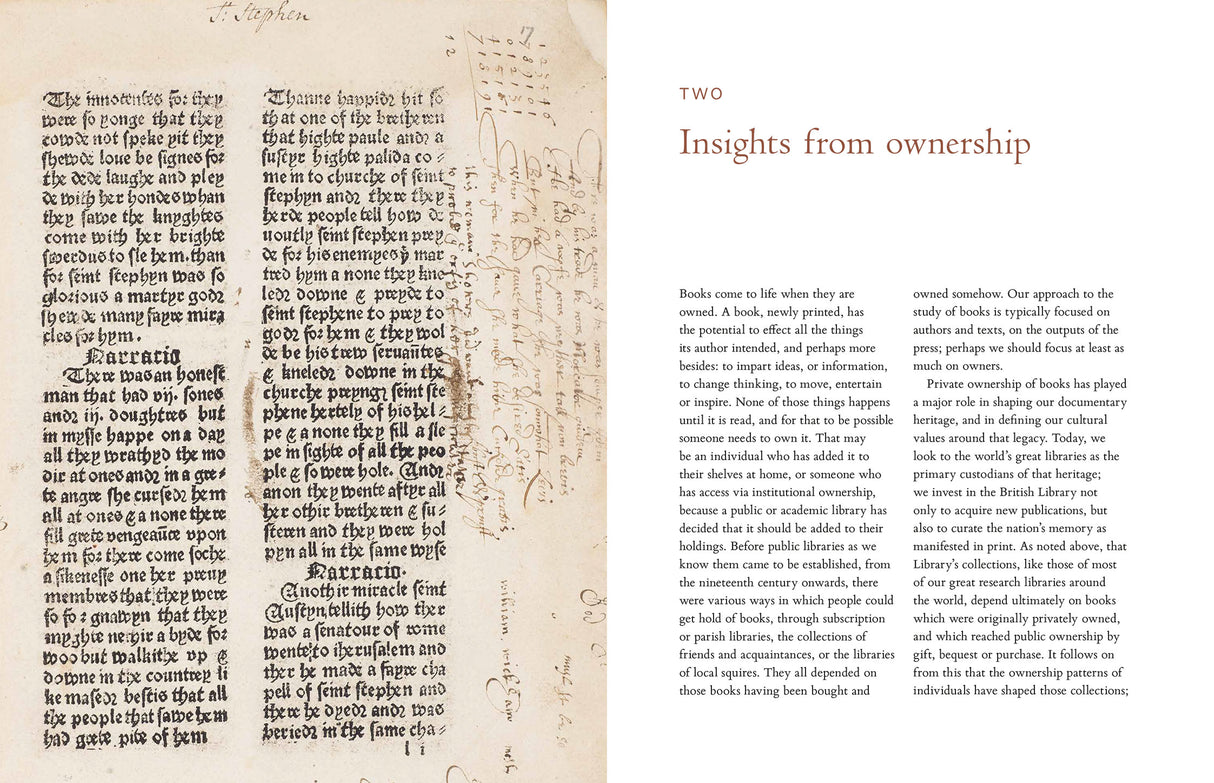 St Stephen
The innocentes for they
were so yonge that they
cowde not speke yit they
shewde loue be signes for
the dede laughe and pley
de with her hondes whan
they sawe the knyghtes
come with her brighte
swerdus to sle hem. than
for seint stephyn was so
glorious a martyr god
shewde many fayre mira
cles for hym.
Narracio
There was an honest
man that had vij. sones
and iij. doughtres but
in mysse happe on a day
all they wrathyd the mo
dir at ones and in a gre⸗
te angre she cursed hem
all at ones & a none there
fill grete vengeaūce vpon
hem for there come soche
a sikenesse one her preuy
membres that they were
so for gnawyn that they
myghte nethir a byde for
woo but walkithe vp &
downe in the countrey li
ke mased bestis that all
the people that sawe hem
had grete pite of hem
Thanne happid hit so
that one of the bretheren
that highte paule and a
sustyr highte palida co⸗
me in to churche of seint
stephyn and there they
herde people tell how de
uoutly seint stephen prey
de for his enemyes ẏ mar
tred hym a none they kne
led downe & preyde to
seint stephene to prey to
god for hem & they wol
de be his trew seruaūtes
& kneled downe in the
churche preyng seint ste
phene hertely of his hel⸗
pe & a none they fill a sle
pe in sighte of all the peo
ple & so were hole. And
anon they wente aftyr all
her othir bretheren & su⸗
steren and they were hol
pyn all in the same wyse
Narracio.
Anothir miracle seint
Austyn tellith how ther
was a senatour of rome
wente to iherusalem and
ther he made a fayre cha
pell of seint stephen and
there he dyed and was
beried in the same cha⸗
l i
TWO
Insights from ownership
Books come to life when they are
owned. A book, newly printed, has
the potential to effect all the things
its author intended, and perhaps more
besides: to impart ideas, or information,
to change thinking, to move, entertain
or inspire. None of those things happens
until it is read, and for that to be possible
someone needs to own it. That may
be an individual who has added it to
their shelves at home, or someone who
has access via institutional ownership,
because a public or academic library has
decided that it should be added to their
holdings. Before public libraries as we
know them came to be established, from
the nineteenth century onwards, there
were various ways in which people could
get hold of books, through subscription
or parish libraries, the collections of
friends and acquaintances, or the libraries
of local squires. They all depended on
those books having been bought and
owned somehow. Our approach to the
study of books is typically focused on
authors and texts, on the outputs of the
press; perhaps we should focus at least as
much on owners.
Private ownership of books has played
a major role in shaping our documentary
heritage, and in defining our cultural
values around that legacy. Today, we
look to the world’s great libraries as the
primary custodians of that heritage;
we invest in the British Library not
only to acquire new publications, but
also to curate the nation’s memory as
manifested in print. As noted above, that
Library’s collections, like those of most
of our great research libraries around
the world, depend ultimately on books
which were originally privately owned,
and which reached public ownership by
gift, bequest or purchase. It follows on
from this that the ownership patterns of
individuals have shaped those collections;